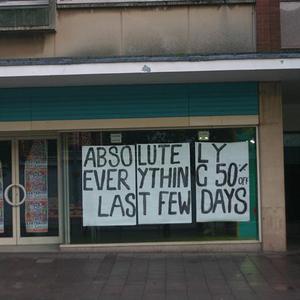 ABSOLUTELY
EVERYTHING 50% OFF
LAST FEW DAYS